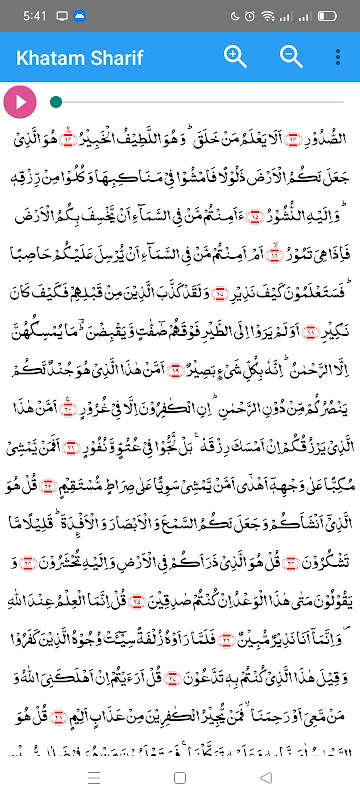 5:41
Khatam Sharif
الصُّدُوْرِ ﴿۱۳﴾ اَلَا يَعْلَمُ مَنْ خَلَقَ ؕ وَهُوَ اللَّطِيْفُ الْخَبِيْرُ ﴿۱۴﴾ هُوَ الَّذِىْ
جَعَلَ لَـكُمُ الْاَرْضَ ذَلُوْلًا فَامْشُوْا فِىْ مَنَاكِبِهَا وَكُلُوْا مِنْ رِّزْقِهٖ
ؕ وَاِلَيْهِ النُّشُوْرُ ﴿۱۵﴾ ءَاَمِنْتُمْ مَّنْ فِى السَّمَآءِ اَنْ يَّخْسِفَ بِكُمُ الْاَرْضَ
فَاِذَا هِىَ تَمُوْرُ ﴿۱۶﴾ اَمْ اَمِنْتُمْ مَّنْ فِى السَّمَآءِ اَنْ يُّرْسِلَ عَلَيْكُمْ حَاصِبًا
ؕ فَسَتَعْلَمُوْنَ كَيْفَ نَذِيْرِ ﴿۱۷﴾ وَلَقَدْ كَذَّبَ الَّذِيْنَ مِنْ قَبْلِهِمْ فَكَيْفَ كَانَ
نَكِيْرِ ﴿۱۸﴾ اَوَلَمْ يَرَوْا اِلَى الطَّيْرِ فَوْقَهُمْ صٰٓفّٰتٍ وَّيَقْبِضْنَ ؕ مَا يُمْسِكُهُنَّ
اِلَّا الرَّحْمٰنُ ؕ اِنَّهٗ بِكُلِّ شَىْءٍۢ بَصِيْرٌ ﴿۱۹﴾ اَمَّنْ هٰذَا الَّذِىْ هُوَ جُنْدٌ لَّـكُمْ
يَنْصُرُكُمْ مِّنْ دُوْنِ الرَّحْمٰنِ ؕ اِنِ الْـكٰفِرُوْنَ اِلَّا فِىْ غُرُوْرٍ ﴿۲۰﴾ اَمَّنْ هٰذَا
الَّذِىْ يَرْزُقُكُمْ اِنْ اَمْسَكَ رِزْقَهٗ ۚ بَلْ لَّجُّوْا فِىْ عُتُوٍّ وَّنُفُوْرٍ ﴿۲۱﴾ اَفَمَنْ يَّمْشِىْ
مُكِبًّا عَلٰى وَجْهِهٖۤ اَهْدٰٓى اَمَّنْ يَّمْشِىْ سَوِيًّا عَلٰى صِرَاطٍ مُّسْتَقِيْمٍ ﴿۲۲﴾ قُلْ هُوَ
الَّذِىْۤ اَنْشَاَكُمْ وَجَعَلَ لَـكُمُ السَّمْعَ وَالْاَبْصَارَ وَالْاَفْـِٕدَةَ ؕ قَلِيْلًا مَّا
تَشْكُرُوْنَ ﴿۲۳﴾ قُلْ هُوَ الَّذِىْ ذَرَاَكُمْ فِى الْاَرْضِ وَاِلَيْهِ تُحْشَرُوْنَ ﴿۲۴﴾ وَ
يَقُوْلُوْنَ مَتٰى هٰذَا الْوَعْدُ اِنْ كُنْتُمْ صٰدِقِيْنَ ﴿۲۵﴾ قُلْ اِنَّمَا الْعِلْمُ عِنْدَ اللّٰهِ
وَاِنَّمَاۤ اَنَا نَذِيْرٌ مُّبِيْنٌ ﴿۲۶﴾ فَلَمَّا رَاَوْهُ زُلْفَةً سِيْٓـَٔتْ وُجُوْهُ الَّذِيْنَ كَفَرُوْا
وَقِيْلَ هٰذَا الَّذِىْ كُنْتُمْ بِهٖ تَدَّعُوْنَ ﴿۲۷﴾ قُلْ اَرَءَيْتُمْ اِنْ اَهْلَـكَنِىَ اللّٰهُ وَ
مَنْ مَّعِىَ اَوْ رَحِمَنَا ۙ فَمَنْ يُّجِيْرُ الْكٰفِرِيْنَ مِنْ عَذَابٍ اَلِيْمٍ ﴿۲۸﴾ قُلْ هُوَ